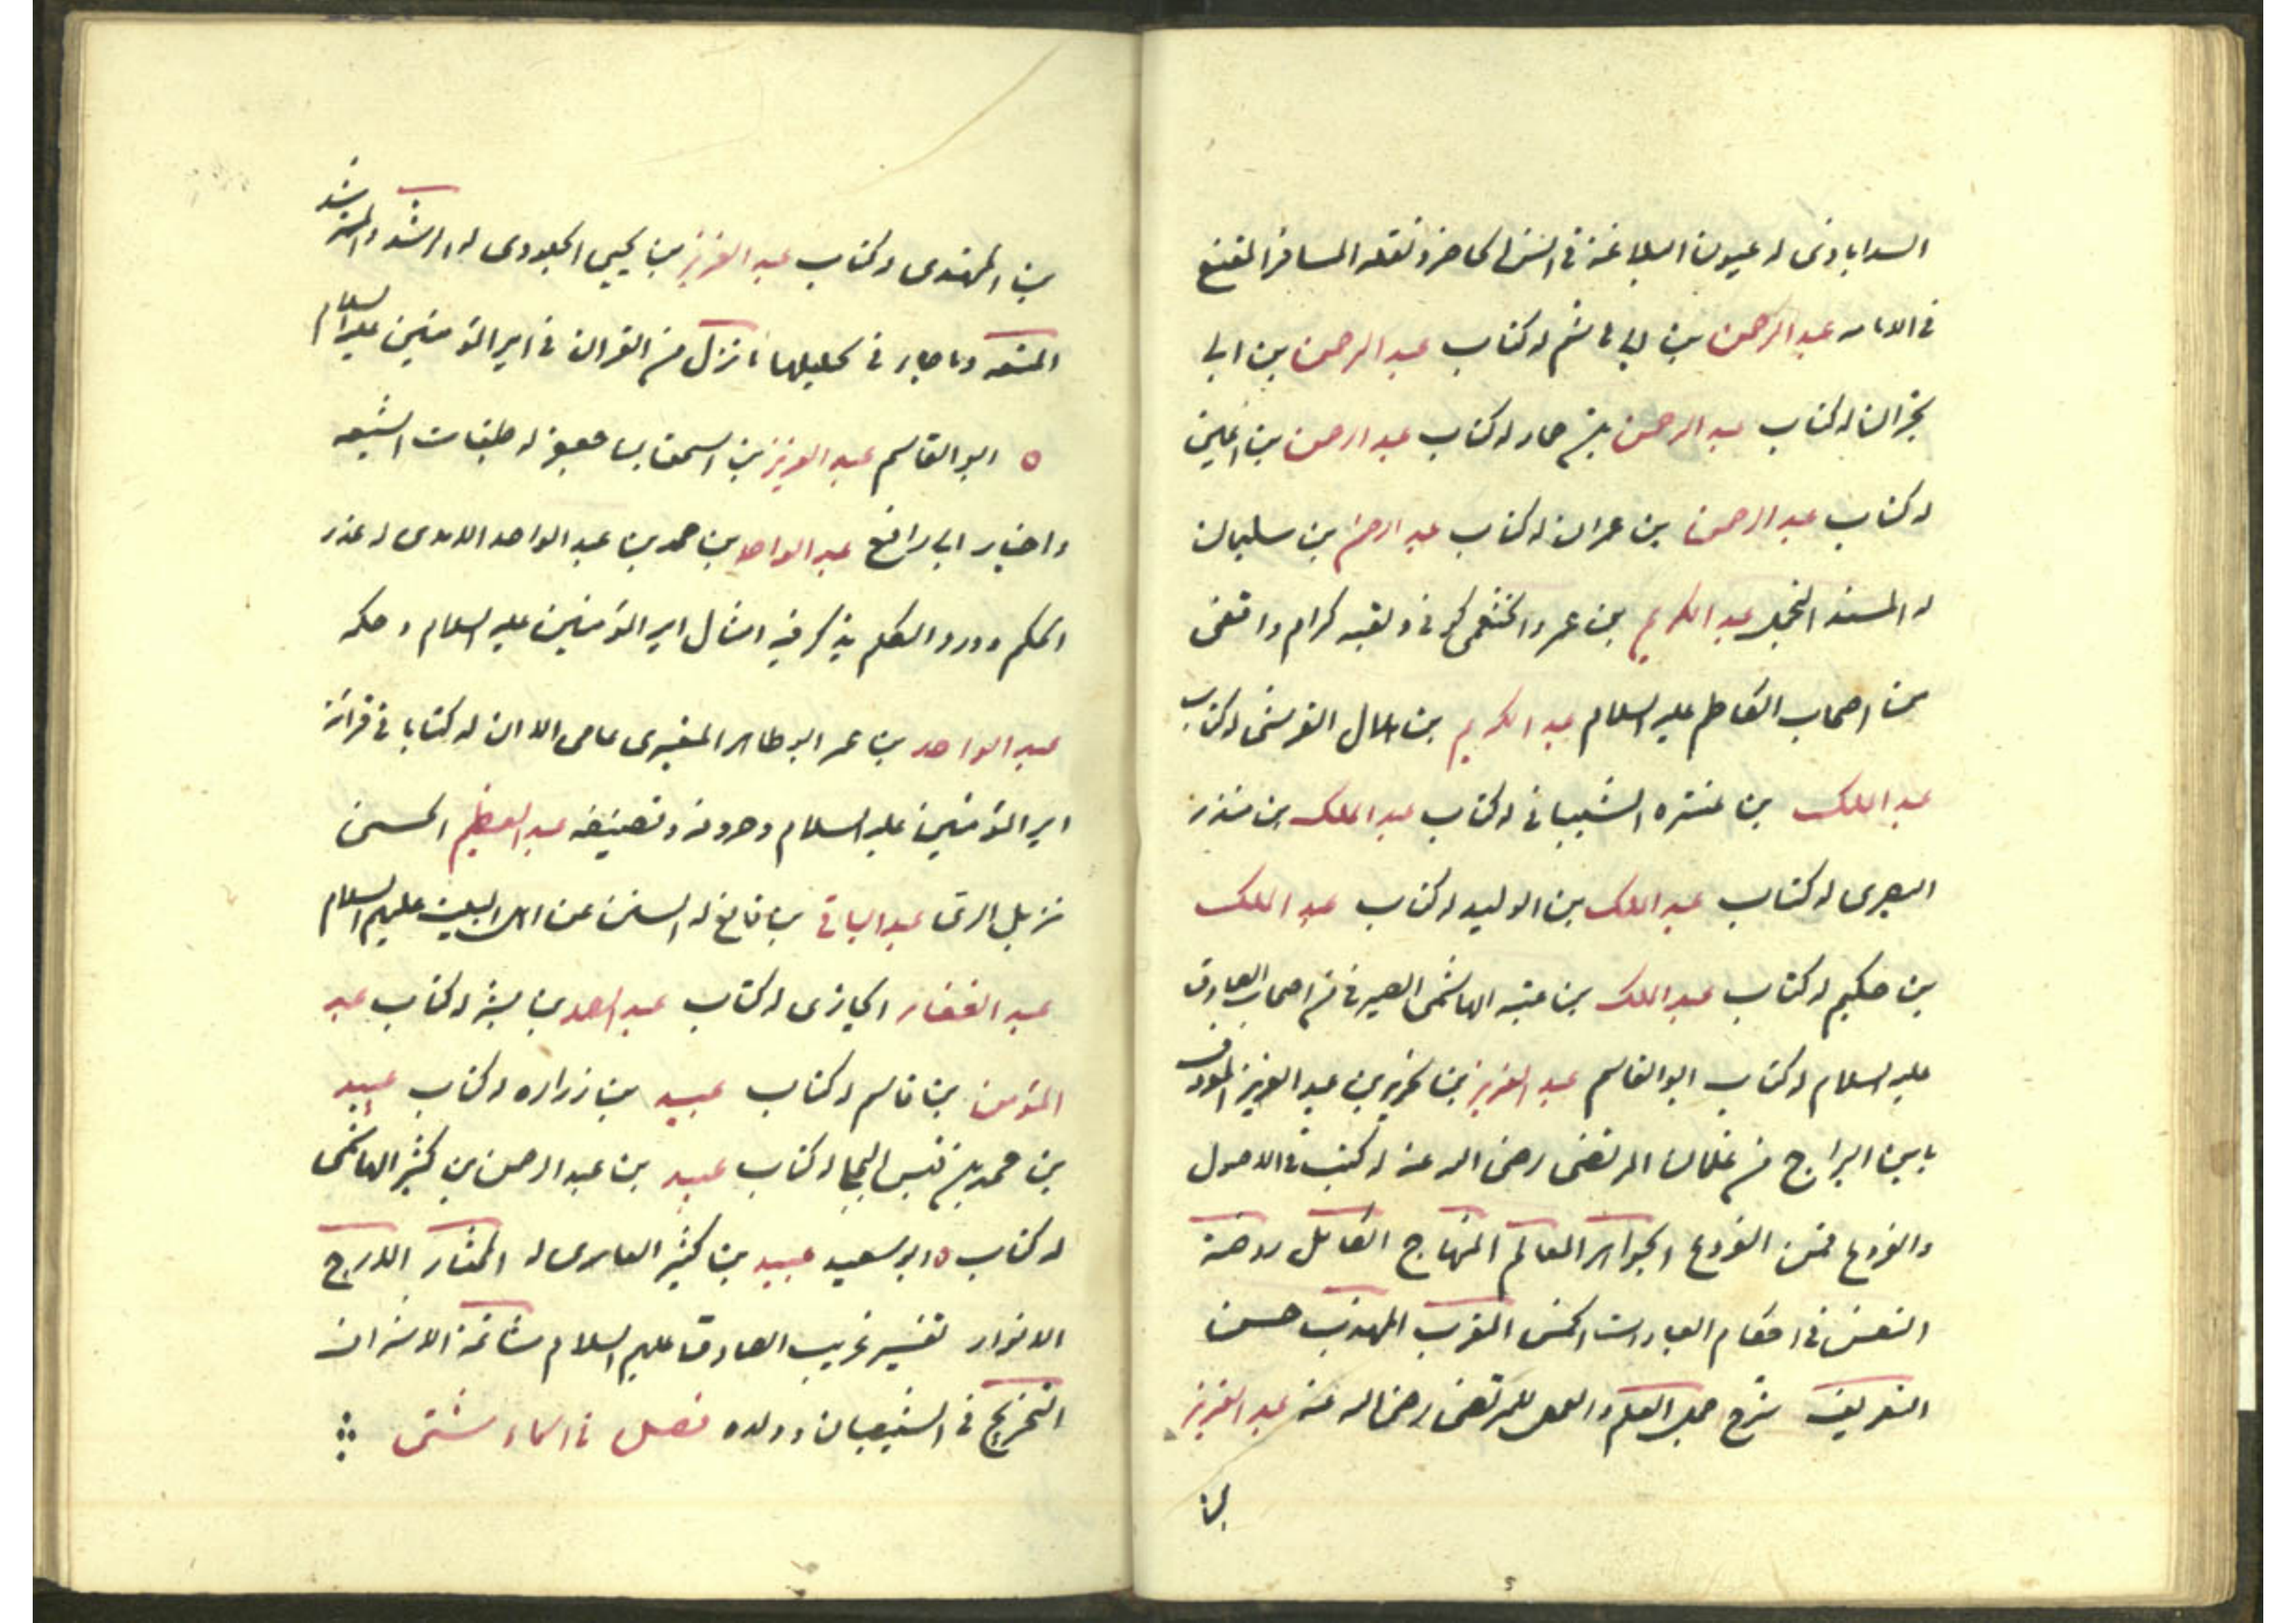 السدابادی له عیون البلاغة فی انس الحاضر ونقله المسافر المقنع
فی الامامه عبد الرحمن بن ابی هاشم له کتاب عبد الرحمن بن ابی
نجران له کتاب عبد الرحمن بن حماد له کتاب عبد الرحمن بن اعین
له کتاب عبد الرحمن بن عمران له کتاب عبد الرحمن بن سلیمان
له المسند عبد الکریم بن عمرو الخثعمی کوفی ولقبه کرام واقفی
من اصحاب الکاظم علیه السلام عبد الکریم بن هلال القرشی له کتاب
عبد الملک بن عنتره الشیبانی له کتاب عبد الملک بن منذر
البصری له کتاب عبد الملک بن الولید له کتاب عبد الملک
بن حکیم له کتاب عبد الملک بن عتبه الهاشمی الصیرفی من اصحاب الصادق
علیه السلام له کتاب ابو القاسم عبد العزیز بن نحریر بن عبد العزیز المعروف
بابن البراج من غلمان المرتضی رضی الله عنه له کتب فی الاصول
والفروع فمن الفروع الجواهر المعالم المنهاج الکامل روضة
النفس فی احکام العبادات الخمس المقرب المهذب حسن
التعریف شرح جمل العلم والعمل للمرتضی رضی الله عنه عبد العزیز
بن المهتدی له کتاب عبد العزیز بن یحیی الجلودی له المرشد والمسترشد
المتعه وما جاء فی تحلیلها ما نزل من القران فی امیر المؤمنین علیه السلام
ابو القاسم عبد العزیز بن اسحق بن جعفر له طبقات الشیعه
واخبار ابی رافع عبد الواحد بن محمد بن عبد الواحد الامدی له غرر
الحکم ودرر الکلم یذکر فیه امثال امیر المؤمنین علیه السلام وحکمه
عبد الواحد بن عمر ابو طاهر المقری عامی الا ان له کتابا فی قرائة
امیر المؤمنین علیه السلام وحروفه وتصنیفه عبد العظیم الحسنی
نزیل الری عبد الباقی بن قانع له السنن عن اهل البیت علیهم السلام
عبد الغفار الجازی له کتاب عبد الصمد بن بشر له کتاب عبد
المؤمن بن قاسم له کتاب عبید بن زراره له کتاب عبید
بن محمد بن قیس البجلی له کتاب عبید بن عبد الرحمن بن کثیر الهاشمی
له کتاب ابو سعید عبید بن کثیر العامری له المختار المدرج
الانوار تفسیر غریب الصادق علیهم السلام
التخریج فی الشیصبان وولده فصل فی اسماء شتی